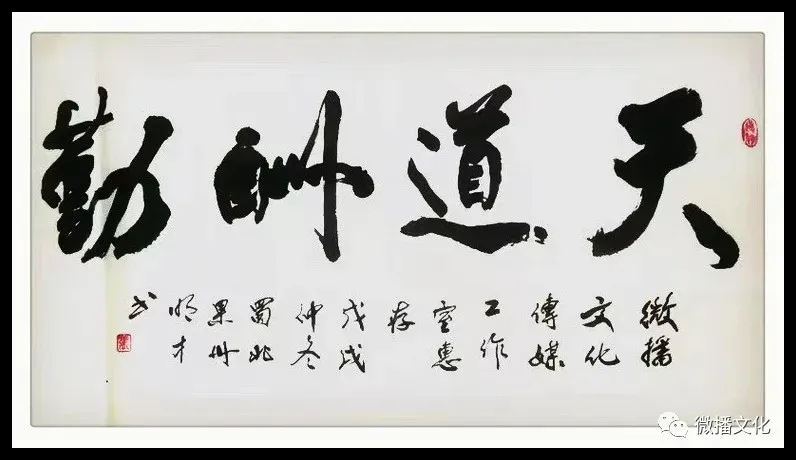 天道酬勤
微播
文化
傳媒
工作
室惠
存
戊戌
仲冬
蜀北
果州
明才
书
微播文化